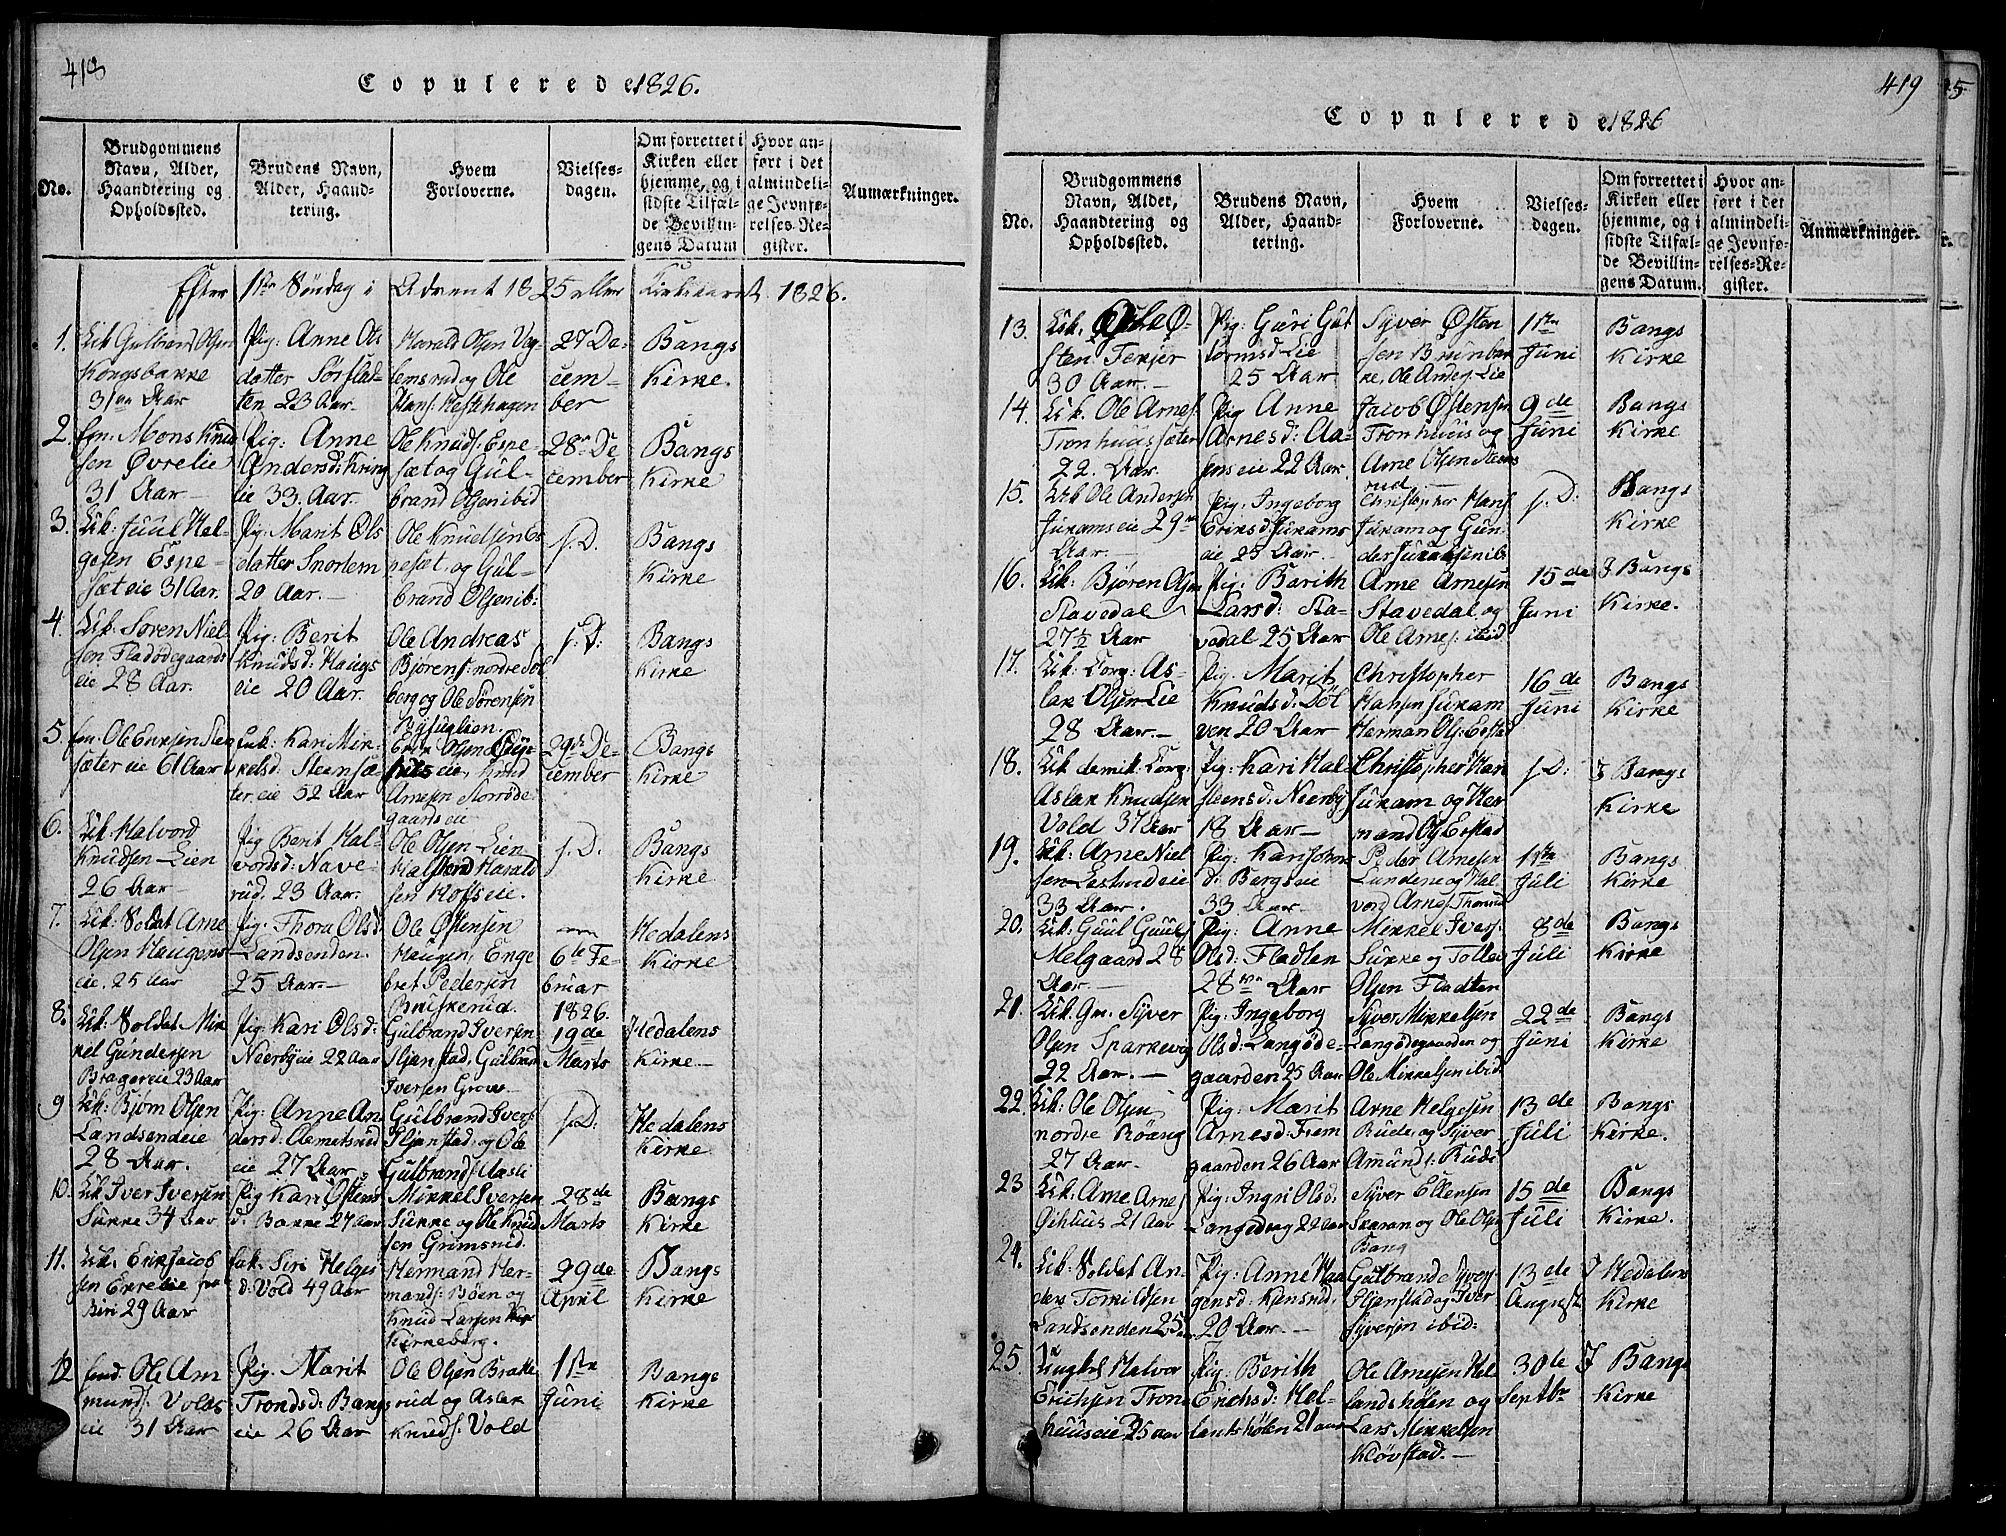 418
Copulerede 1826.
No.
Brudgommens Navn, Alder, Haandtering og Opholdssted.
Brudens Navn, Alder, Haandtering.
Hvem Forloverne.
Vielsesdagen.
Om forrettet i Kirken eller hjemme, og i sidste Tilfælde Bevillingens Datum
Hvor anført i det almindelige Jevnførelses-Register.
Anmærkninger.
Efter 1ste Søndag i Advent 1825 eller Kirkeaaret 1826.
1. Ungk. Gulbrand Olsen Kongsbakke 31 Aar
Pig: Anne Olsdatter Sørflatten 23 Aar
Harald Olsen Vaglemsrud og Ole Hans: Hestehagen
27 December
Bangs Kirke.
2. Mons Knudsen Øvrelie 31 Aar
Pig: Anne Andersd: Kringlie 33 Aar.
Ole Knuds: Espesæt og Gulbrand Olsen ibid
28 December
Bangs Kirke
3. Juul Helgesen Espesæteie 31 Aar.
Pig: Marit Olsdatter Snortem 20 Aar.
Ole Knudsen Espesæt, og Gulbrand Olsen ib:
s. D.
Bangs Kirke
4. Søren Nielsen Fladødegaardseie 28 Aar.
Pig: Berit Knudsd: Haugseie 20 Aar.
Ole Andreas Bjørens: nordre Solberg og Ole Sørensen
s. D:
Bangs Kirke
5. Ole Eriksen sæter eie 61 Aar
Enk: Kari Mikkelsd: Steensæter eie 52 Aar
Erik Olsen eie, Knud Arnesen Storrødegaards eie
29de December
Bangs Kirke
6. Halvord Knudsen Lien 26 Aar
Pig Berit Halvorsd: Naverud. 23 Aar.
Ole Olsen Lien Halsteen Haraldsen Hofseie.
s. D.
Bangs Kirke
7. Soldat Arne Olsen Haugens eie. 25 Aar
Pig: Thora Olsd: Landsenden. 25 Aar.
Ole Østensen Haugen, Engebret Pedersen Bruskerud.
6te Februar 1826.
Hedalens Kirke
8. Soldat Mikkel Gundersen Bragereie 23 Aar
Pig: Kari Olsd: Neerbyeie 22 Aar
Gulbrand Iversen Iljanstad, Gulbrand Iversen Grove
19de Marts
Hedalens Kirke
9 Bjørn Olsen Landsendeie 28 Aar.
Pig: Anne Andersd: Clemetsrud eie 27 Aar
Gulbrand Ivers: Iljanstad, og Ole Gulbrands: Aasli
s. D:
Hedalens Kirke
10. Iver Iversen Sukke 34 Aar
Pig Kari Østensd. Bakke 27 Aar
Mikkel Iversen Sukke og Ole Knudsen Grimsrud.
28de Marts
Bangs Kirke
11. Erik Jacobsen fra Biri 29 Aar
Siri Helgesd: Vold 49 Aar
Hermand Hermands: Bøen og Knud Larsen Kirkeberg.
29de April
Bangs Kirke
12 Ole Ammunds: Volds eie 31 Aar
Pig. Marit Tronds d: Bangs eie 26 Aar
Ole Olsen Brakkerud og Aslak Knuds: Vold
1ste Juni
Bangs Kirke
419
Copulerede 1826
No.
Brudgommens Navn, Alder, Haandtering og Opholdssted.
Brudens Navn, Alder, Haandtering.
Hvem Forloverne.
Vielsesdagen.
Om forrettet i Kirken eller hjemme, og i sidste Tilfælde Bevillingens Datum.
Hvor anført i det almindelige Jevnførelses-Register.
Anmærkninger.
13. Østen: Terjer 30 Aar.
Pig: Guri Guttormsd Lie 25 Aar
Syver Østensen Brunbakke, Ole Anders: Lie
1ste Juni
Bangs Kirke
14. Ole Arnes: Tronhuussæter 22. Aar.
Pig Anne Arnesd: Aasenseie 22 Aar
Jacob Østensen Tronhuus og Arne Olsen Steensrud
9de Juni
Bangs Kirke
15. Ole Andersen Jukamseie 29 Aar.
Pig: Ingeborg Eriksd: Jukamseie 25 Aar.
Christopher Hans: Jukam og Gunder Jukam ib
s. D:
Bangs Kirke
16. Bjøren Olsen Stavedal 27½ Aar
Pig: Barith Larsd: Stavedal 25 Aar
Arne Arnesen Stavedal og Ole Arnes: ibid
15de Juni
Bangs Kirke.
17. Korp: Aslak Olsen Lie 28 Aar.
Pig. Marit Knudsd. Dølven 20 Aar
Christopher Hansen Jukam Herman Ols:
16de Juni
Bangs Kirke
18. demit: Korp: Aslak Knudsen Vold 37 Aar
Pig: Kari Halsteensd: Neerby 18 Aar
Christopher Hans: Jukam og Hermand Ols
s. D:
Bangs Kirke
19. Arne Nielsen eie 33 Aar.
Pig: Kari Johnsd: Bergseie 33 Aar
Peder Arnesen Lundene og Halvord Arnes:
1ste Juli
Bangs Kirke
20. Guul Guuls: Melgaard 28 Aar.
Pig: Anne Olsd: Fladten 28 Aar
Mikkel Ivers: Sukke og Tollev Olsen Fladten
8de Juli
Bangs Kirke
21. Syver Olsen Sparkevog 22 Aar.
Pig: Ingeborg Olsd: Langødegaarden 25 Aar
Syver Mikkelsen Langødegaarden og Ole Mikkelsen ibid
22de Juni
Bangs Kirke
22. Ole Olsen nordre Røang 27 Aar.
Pig: Marit Arnesd: Fremgaarden 26 Aar
Arne Helgesen Rude, og Syver Amunds: Rudi
13de Juli
Bangs Kirke.
23 Arne Arnes: Gihluus 21 Aar
Pig: Ingri Olsd: Langedrag 22 Aar
Syver Ellensen Skaran og Ole Olsen Bang
15de Juli
Bangs Kirke.
24. Soldat Anders Torkildsen Landsenden 25
Pig: Anne Haagensd: Kjensrud, 20 Aar.
Gulbrand Syvers: Iljanstad og Iver Syversen ibid:
13de August
Hedalens Kirke
25. Ungkrl Halvor Erichsen Tronhuuseie 25 aar
Pig: Berith Erichsd: Hellantshølen 21 aar
Ole Arnesen Hellandshølen og Lars Mikkelsen Kløvstad.
30de Septbr
Bangs Kirke